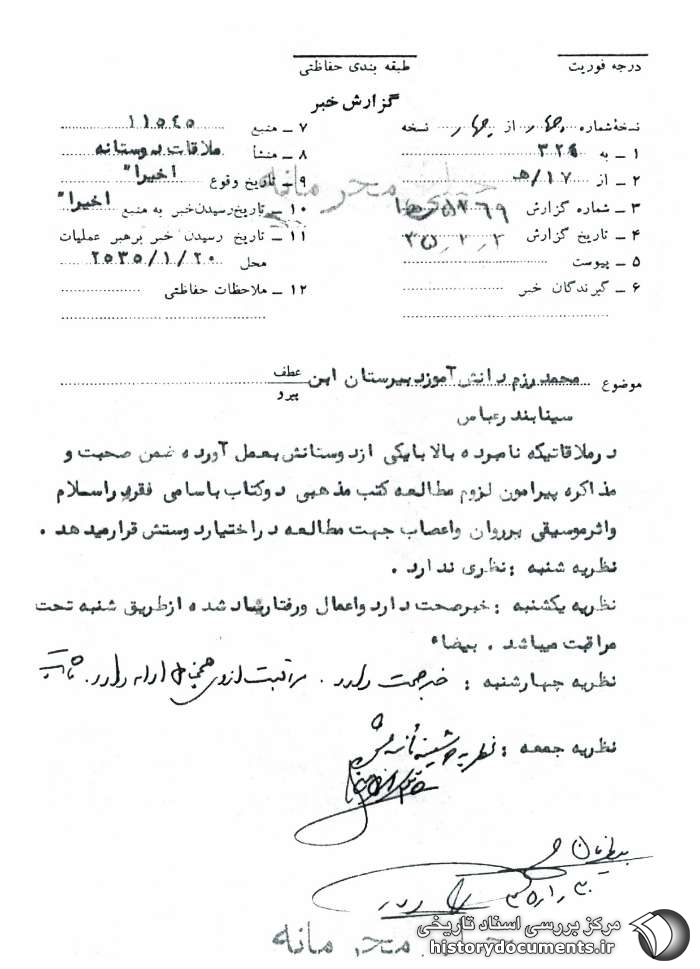 درجه فوریت
طبقه بندی حفاظتی
گزارش خبر
نسخهٔ شماره چهار از چهار نسخه
۱ ـ به ۳۲٤
۲ ـ از ۱۷/هـ
۳ ـ شماره گزارش
٤ ـ تاریخ گزارش
۵ ـ پیوست
۶ ـ گیرندگان خبر
۷ ـ منبع ۱۱۵٤۵
۸ ـ منشأ ملاقات دوستانه
۹ ـ تاریخ وقوع اخیرا"
۱۰ ـ تاریخ رسیدن خبر به منبع اخیرا"
۱۱ ـ تاریخ رسیدن خبر برهبر عملیات
محل ۲۵۳۵/۱/۲۰
۱۲ ـ ملاحظات حفاظتی
خیلی محرمانه
موضوع محمد رزم دانش آموز دبیرستان ابن
عطف
پیرو
سینا بندرعباس
در ملاقاتیکه نامبرده بالا با یکی از دوستانش بعمل آورده ضمن صحبت و
مذاکره پیرامون لزوم مطالعه کتب مذهبی دو کتاب باسامی فقر در اسلام
و اثر موسیقی بر روان و اعصاب جهت مطالعه در اختیار دوستش قرار میدهد .
نظریه شنبه : نظری ندارد .
نظریه یکشنبه : خبر صحت دارد و اعمال و رفتار یاد شده از طریق شنبه تحت
مراقبت میباشد . بیضاء
نظریه چهارشنبه : خبر صحت دارد . مراقبت از وی همچنان ادامه دارد .
نظریه جمعه : نظریه
خیلی محرمانه
مرکز بررسی اسناد تاریخی
historydocuments.ir